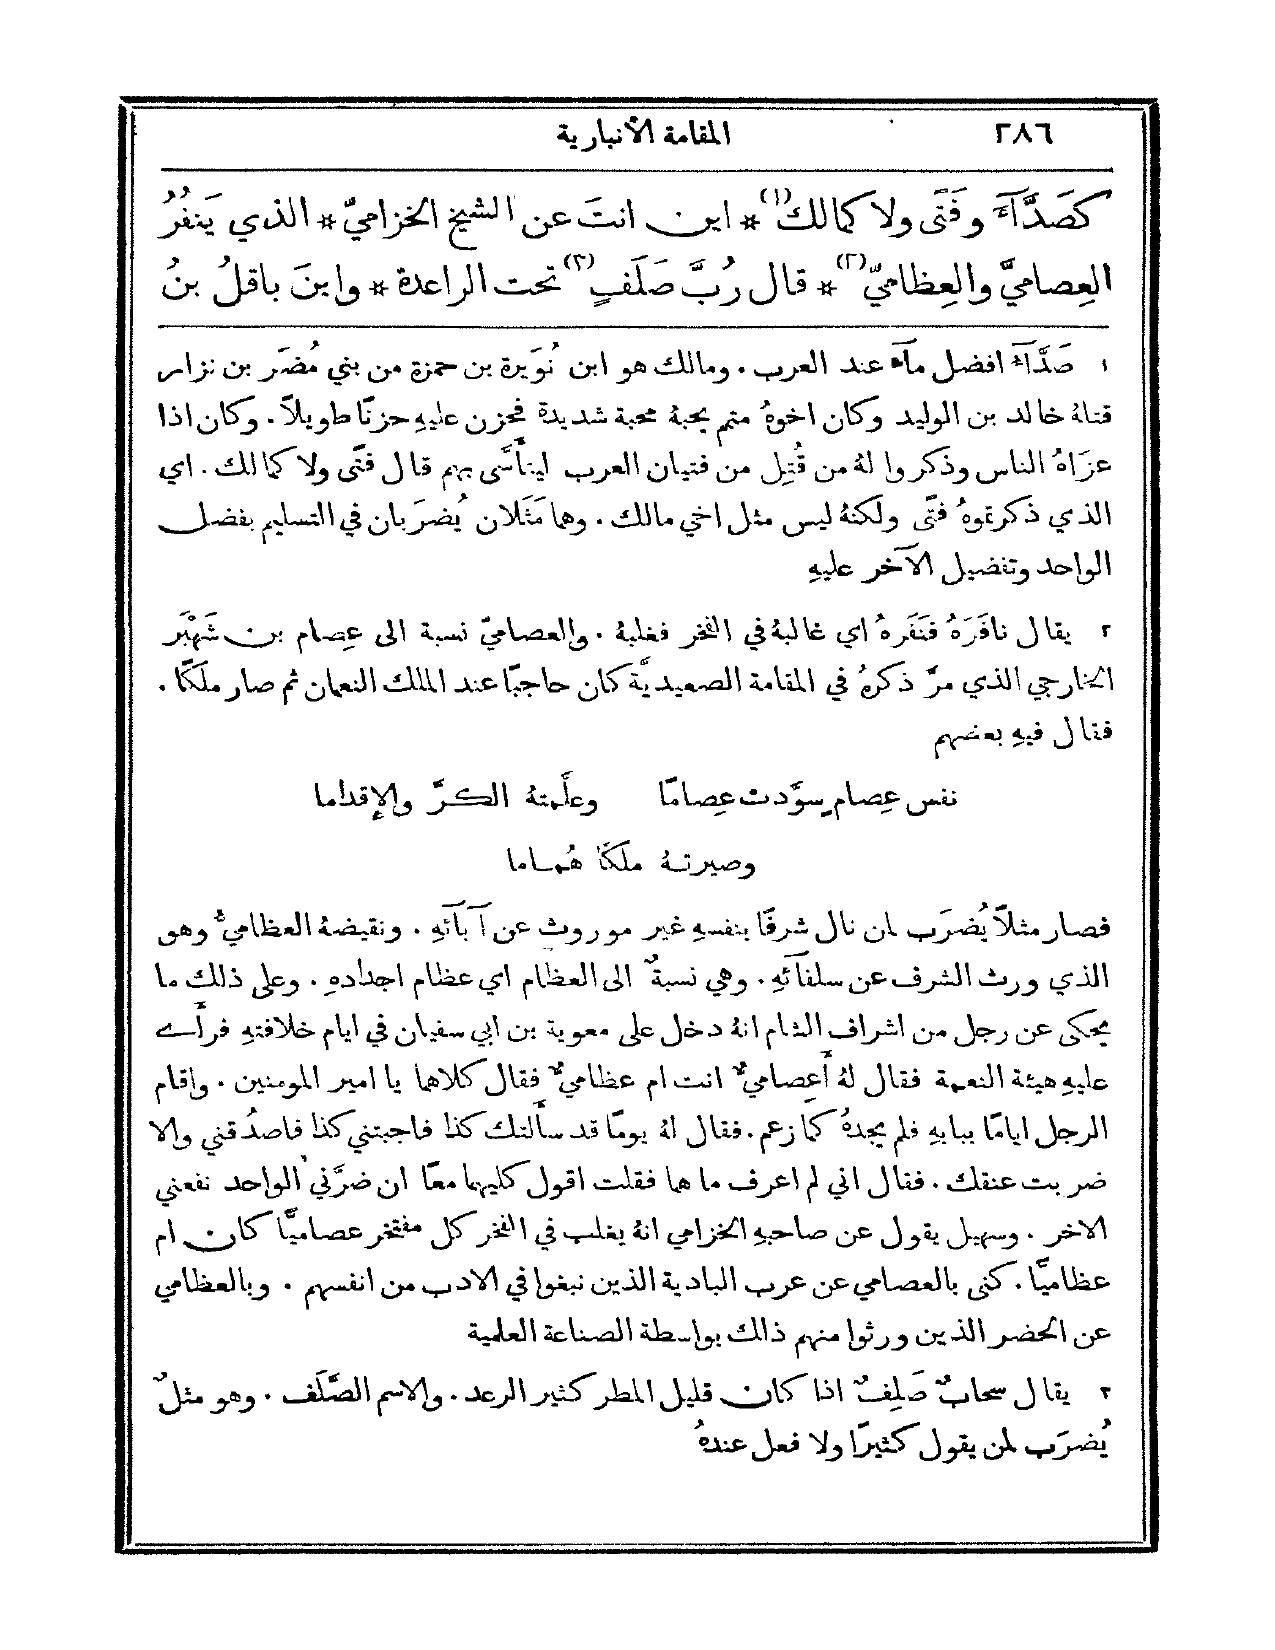 ٢٨٦ المقامة الأنبارية
كصَدَّآءَ وفَتًى ولا كمالك(١) * اين انتَ عن الشيخ الخزاميّ * الذي يَنفُرُ
العِصاميَّ والعِظاميَّ(٢) * قال رُبَّ صَلَفٍ(٣) تحت الراعدة * واينَ باقلُ بنُ
١ صَدَّآءُ افضل مآء عند العرب . ومالك هو ابن نُوَيرة بن حمزة من بني مُضَر بن نزار
قتلهُ خالد بن الوليد وكان اخوهُ متمم يحبهُ محبة شديدة فحزن عليهِ حزنًا طويلاً . وكان اذا
عزاهُ الناس وذكروا لهُ من قُتِل من فتيان العرب ليتأَسَّى بهم قال فتًى ولا كمالك . اي
الذي ذكرتموهُ فتًى ولكنهُ ليس مثل اخي مالك . وهما مَثَلان يُضرَبان في التسليم بفضل
الواحد وتفضيل الآخر عليهِ
٢ يقال نافَرَهُ فنَفَرهُ اي غالبهُ في الفخر فغلبهُ . والعصاميّ نسبة الى عِصام بن شَهْبَر
الخارجي الذي مرَّ ذكرهُ في المقامة الصعيديَّة كان حاجبًا عند الملك النعمان ثم صار ملكًا .
فقال فيهِ بعضهم
نفس عِصامٍ سوَّدت عِصامًا وعلَّمتهُ الكرَّ والإقداما
وصيرتهُ ملكًا هُماما
فصار مثلاً يُضرَب لمن نال شرفًا بنفسهِ غير موروث عن آبآئهِ . ونقيضهُ العظاميُّ وهو
الذي ورث الشرف عن سلفآئهِ . وهي نسبةٌ الى العظام اي عظام اجدادهِ . وعلى ذلك ما
يحكى عن رجل من اشراف الشام انهُ دخل على معوية بن ابي سفيان في ايام خلافتهِ فرأَى
عليهِ هيئة النعمة فقال لهُ أَعِصاميٌّ انت ام عظاميٌّ فقال كلاهما يا امير المومنين . واقام
الرجل ايامًا ببابهِ فلم يجدهُ كما زعم . فقال لهُ يومًا قد سأَلتك كذا فاجبتني كذا فاصدُقني والا
ضربت عنقك . فقال اني لم اعرف ما هما فقلت اقول كليهما معًا ان ضرَّني الواحد نفعني
الاخر . وسهيل يقول عن صاحبهِ الخزامي انهُ يغلب في الفخر كل مفتخر عصاميًّا كان ام
عظاميًّا . كنى بالعصامي عن عرب البادية الذين نبغوا في الادب من انفسهم . وبالعظامي
عن الحضر الذين ورثوا منهم ذلك بواسطة الصناعة العلمية
٣ يقال سحابٌ صَلِفٌ اذا كان قليل المطر كثير الرعد . والاسم الصَّلَف . وهو مثلٌ
يُضرَب لمن يقول كثيرًا ولا فعل عندهُ